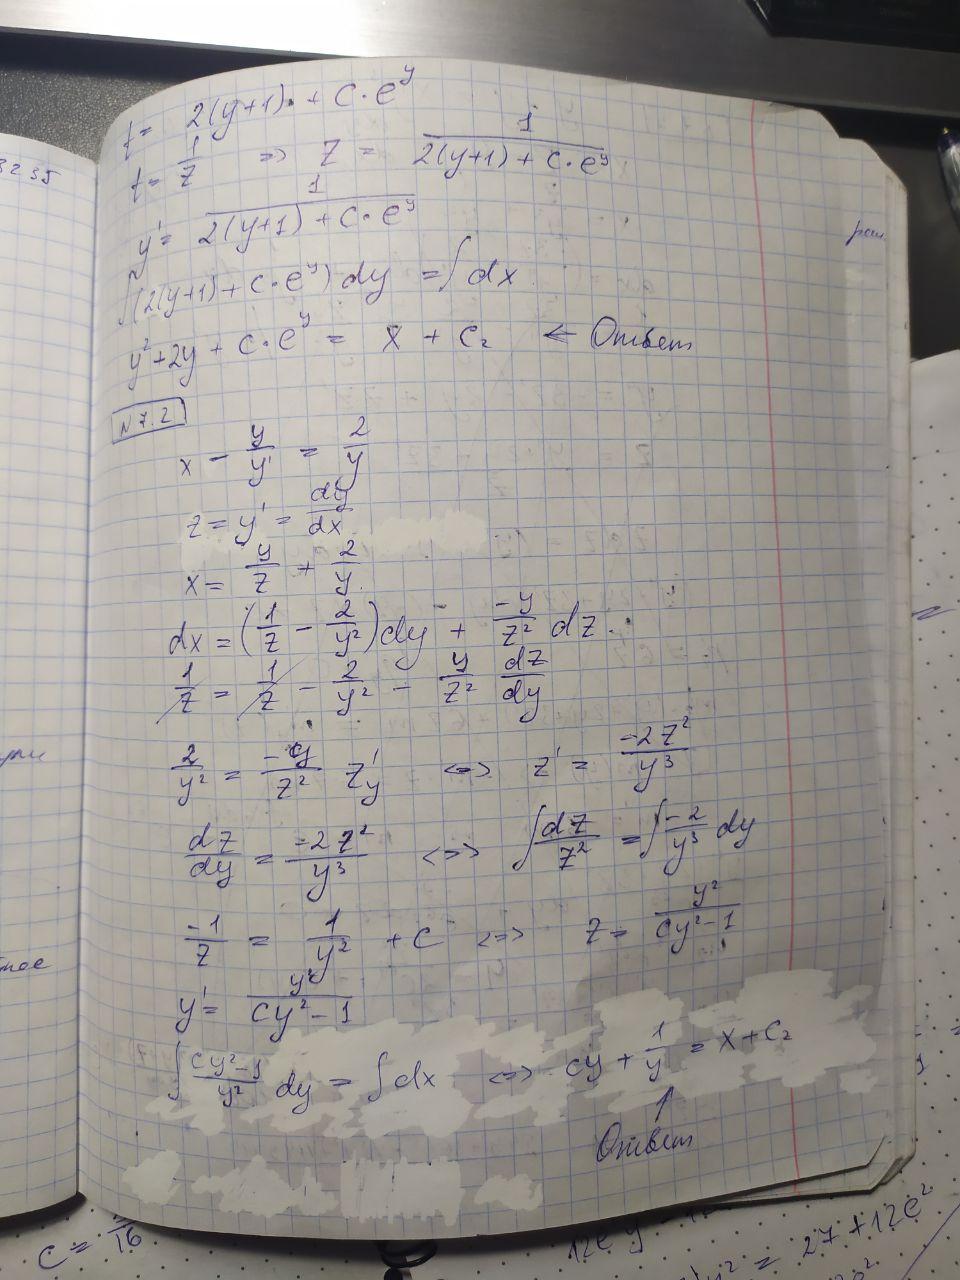 3235
t = 2(y+1) + C·e^y
t = 1/z => z = 1/(2(y+1) + C·e^y)
y' = 1/(2(y+1) + C·e^y)
∫(2(y+1) + C·e^y) dy = ∫dx
y² + 2y + C·e^y = x + C₂ ← Ответ
N 7.2
x - y/y' = 2/y
z = y' = dy/dx
x = y/z + 2/y
dx = (1/z - 2/y²)dy + -y/z² dz.
1/z = 1/z - 2/y² - y/z² dz/dy
2/y² = -y/z² z'y <=> z' = -2z²/y³
dz/dy = -2z²/y³ <=> ∫dz/z² = ∫-2/y³ dy
-1/z = 1/y² + C <=> z = y²/(cy²-1)
y' = y²/(cy²-1)
∫(cy²-1)/y² dy = ∫dx <=> cy + 1/y = x + C₂
↑
Ответ
C = π/16
y² = 27 + 12e²